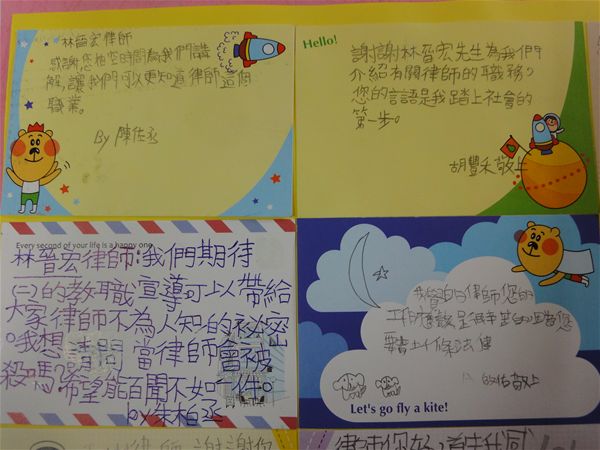 林晉宏律師
感謝您抽空時間為我們講
解,讓我們可以更知道律師這個
職業。
By 陳佐丞
Hello!
謝謝林晉宏先生為我們
介紹有關律師的職務,
您的言語是我踏上社會的
第一步。
胡豐禾敬上
Every second of your life is a happy one
林晉宏律師:我們期待
(二)的教職宣導可以帶給
大家律師不為人知的祕密
。我想請問當律師會被
殺嗎?希望能百聞不如一件。
by 朱柏丞
律師您的
工作應該是很辛苦的
法律
敬上
Let's go fly a kite!
律師 謝謝你
律師你好,首先我感